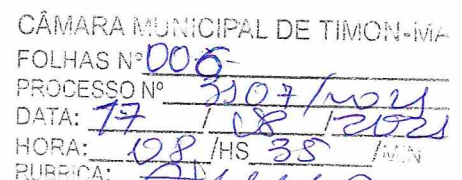 CÂMARA MUNICIPAL DE TIMON-MA
FOLHAS Nº 006
PROCESSO Nº 3107/2021
DATA: 17 / 08 / 2021
HORA: 08 /HS 35 /MIN
RUBRICA: